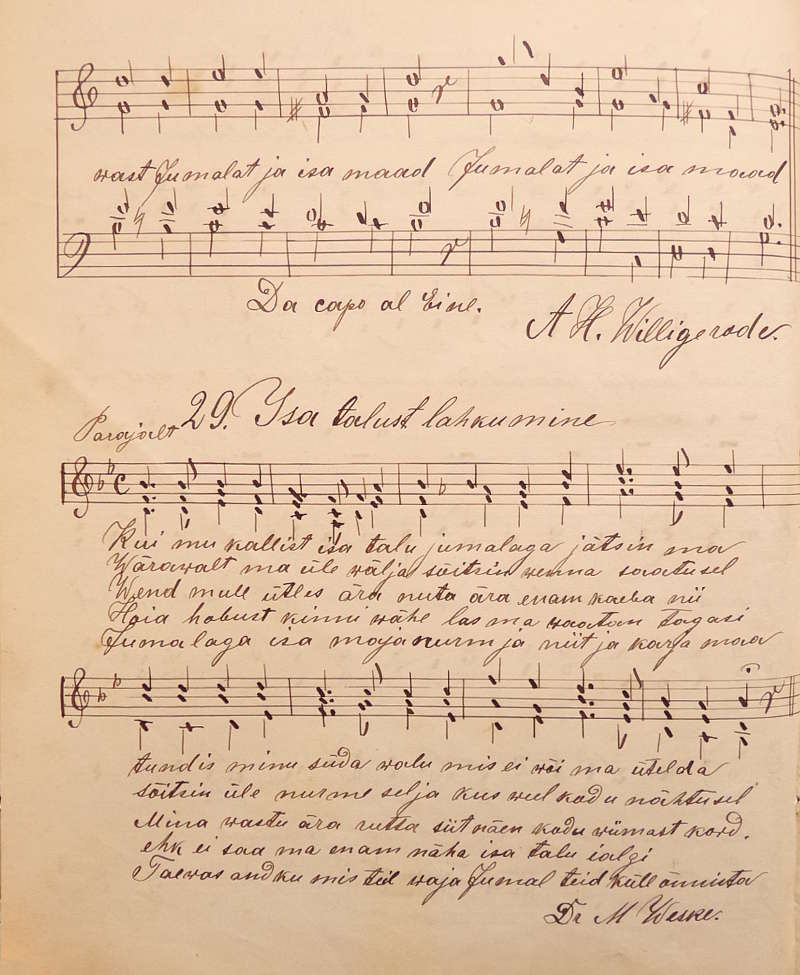 wast Jumalat ja isa maad Jumalat ja isa maad
Da capo al Eine.
A H. Willigerode.
29. Isa talust lahkumine
Parajalt
Kui mu kallist isa talu jumalaga jätsin ma
Wärawalt ma üle wälja sõitsin wenna saatusel
Wend mull ütles ära nuta ära enam kaeba nii
Hoia hobust kinni wähe las ma waatan tagasi
Jumalaga isa maja nurm ja niit ja karja maa
tundis minu süda walu mis ei wõi ma ütelda
sõitsin üle nurme selja kus weel kodu nähtusel
Mina wastu ära rutta siit näen kodu wiimast kord.
ehk ei saa ma enam näha isa talu ialgi
Taewas andku mis teil waja Jumal teid küll õnnista
Dr M Weske.